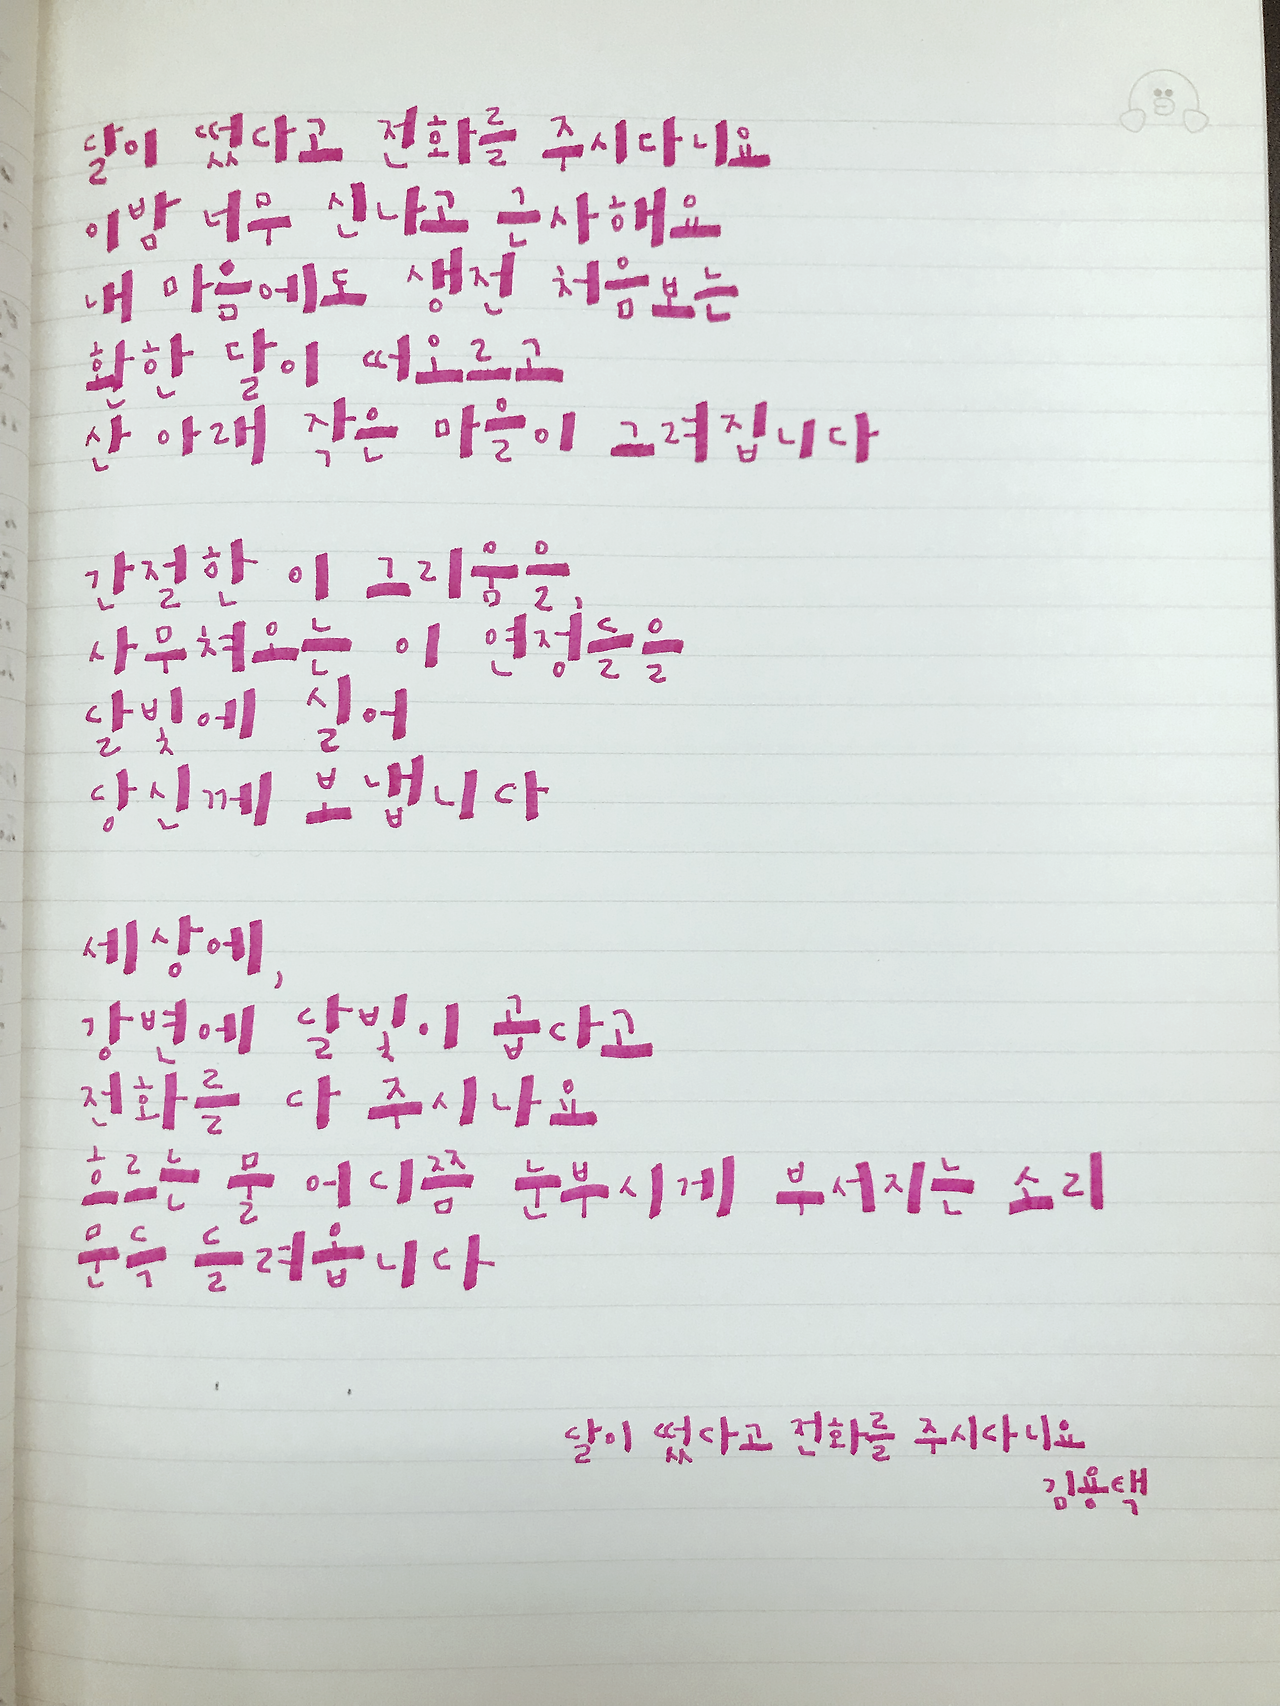 달이 떴다고 전화를 주시다니요
이밤 너무 신나고 근사해요
내 마음에도 생전 처음보는
환한 달이 떠오르고
산 아래 작은 마을이 그려집니다
간절한 이 그리움을,
사무쳐오는 이 연정들을
달빛에 실어
당신께 보냅니다
세상에,
강변에 달빛이 곱다고
전화를 다 주시나요
흐르는 물 어디쯤 눈부시게 부서지는 소리
문득 들려옵니다
달이 떴다고 전화를 주시다니요
김용택